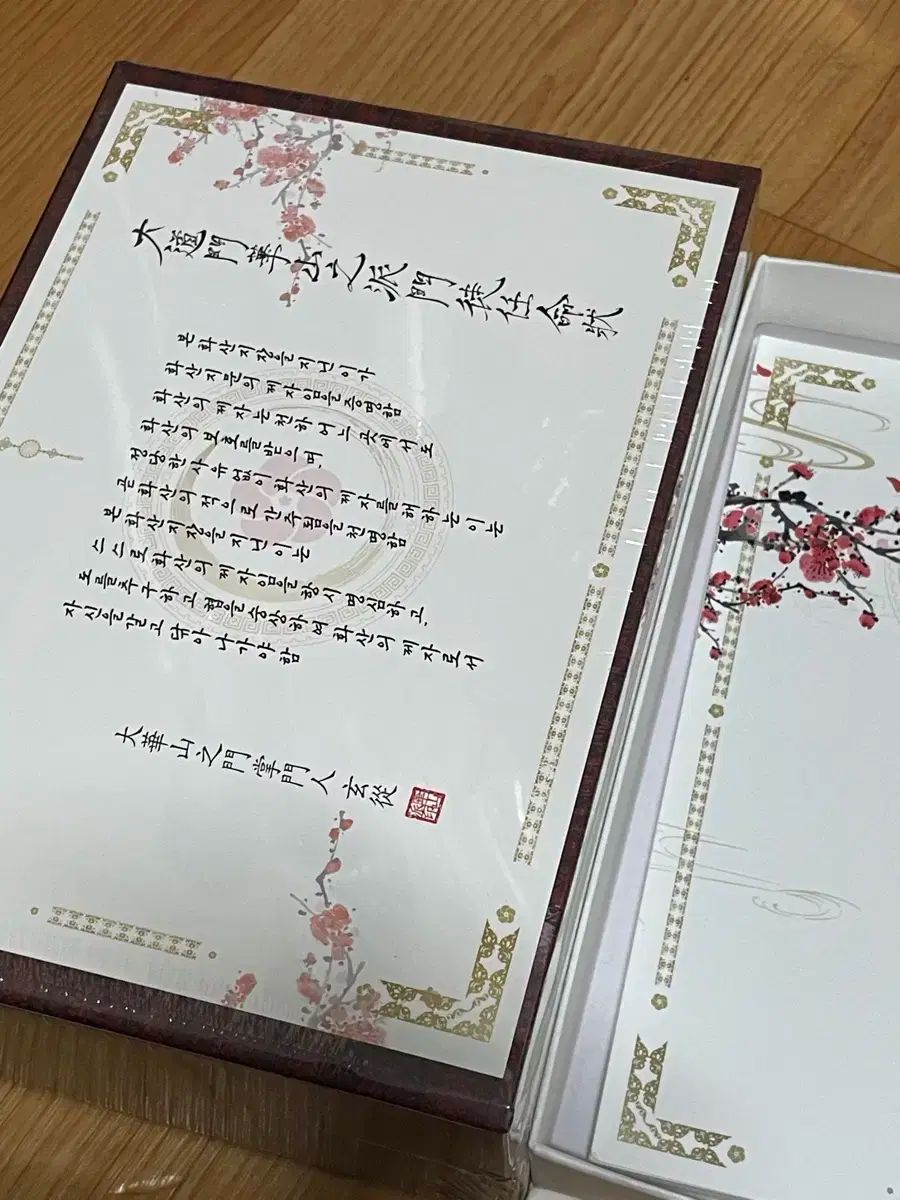 大道門華山之派門徒任命狀
본 화산지장을 지닌 이가
화산지문의 제자임을 증명함
화산의 제자는 천하 어느 곳에서도
화산의 보호를 받으며,
정당한 사유 없이 화산의 제자를 해하는 이는
곧 화산의 적으로 간주됨을 천명함
본 화산지장을 지닌 이는
스스로 화산의 제자임을 항시 명심하고,
도를 추구하고 협을 숭상하여 화산의 제자로서
자신을 갈고 닦아 나가야 함
大華山之門掌門人玄從